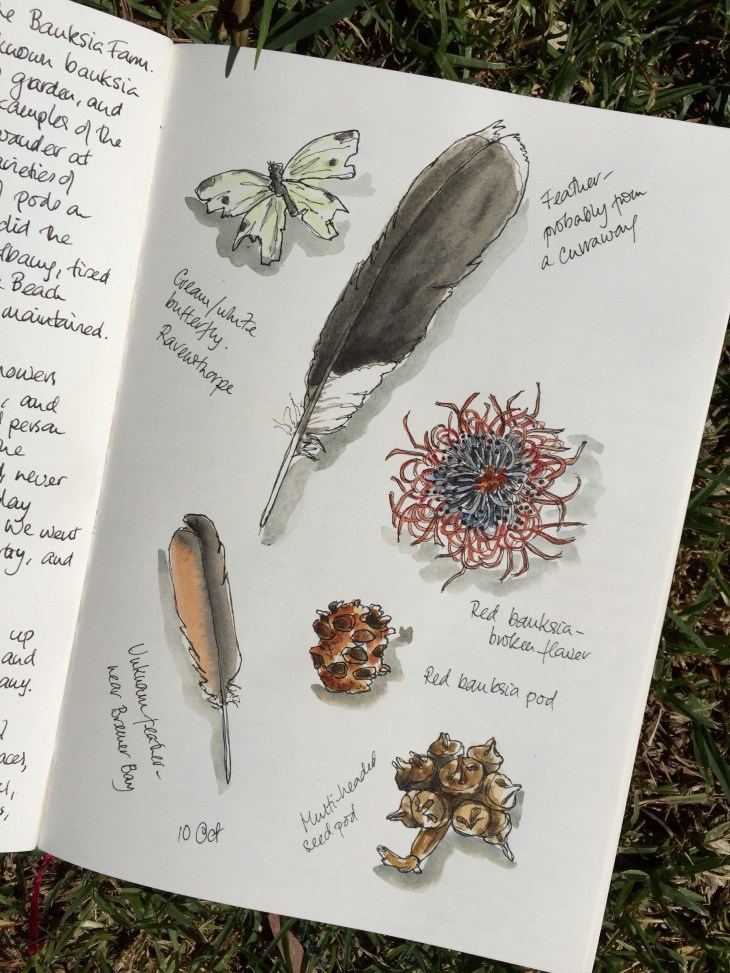 he Banksia Farm.
known banksia
garden, and
examples of the
wander at
varieties of
pods in
did the
Albany, tired
Beach
maintained.
howers
, and
person
the
never
day
We went
and
up
and
any.
Cream/white
butterfly.
Ravensthorpe
Feather-
probably from
a currawong
Red banksia-
broken flower
Red banksia pod
Unknown feather-
near Bremer Bay
Multi-headed
seed pod
10 Oct